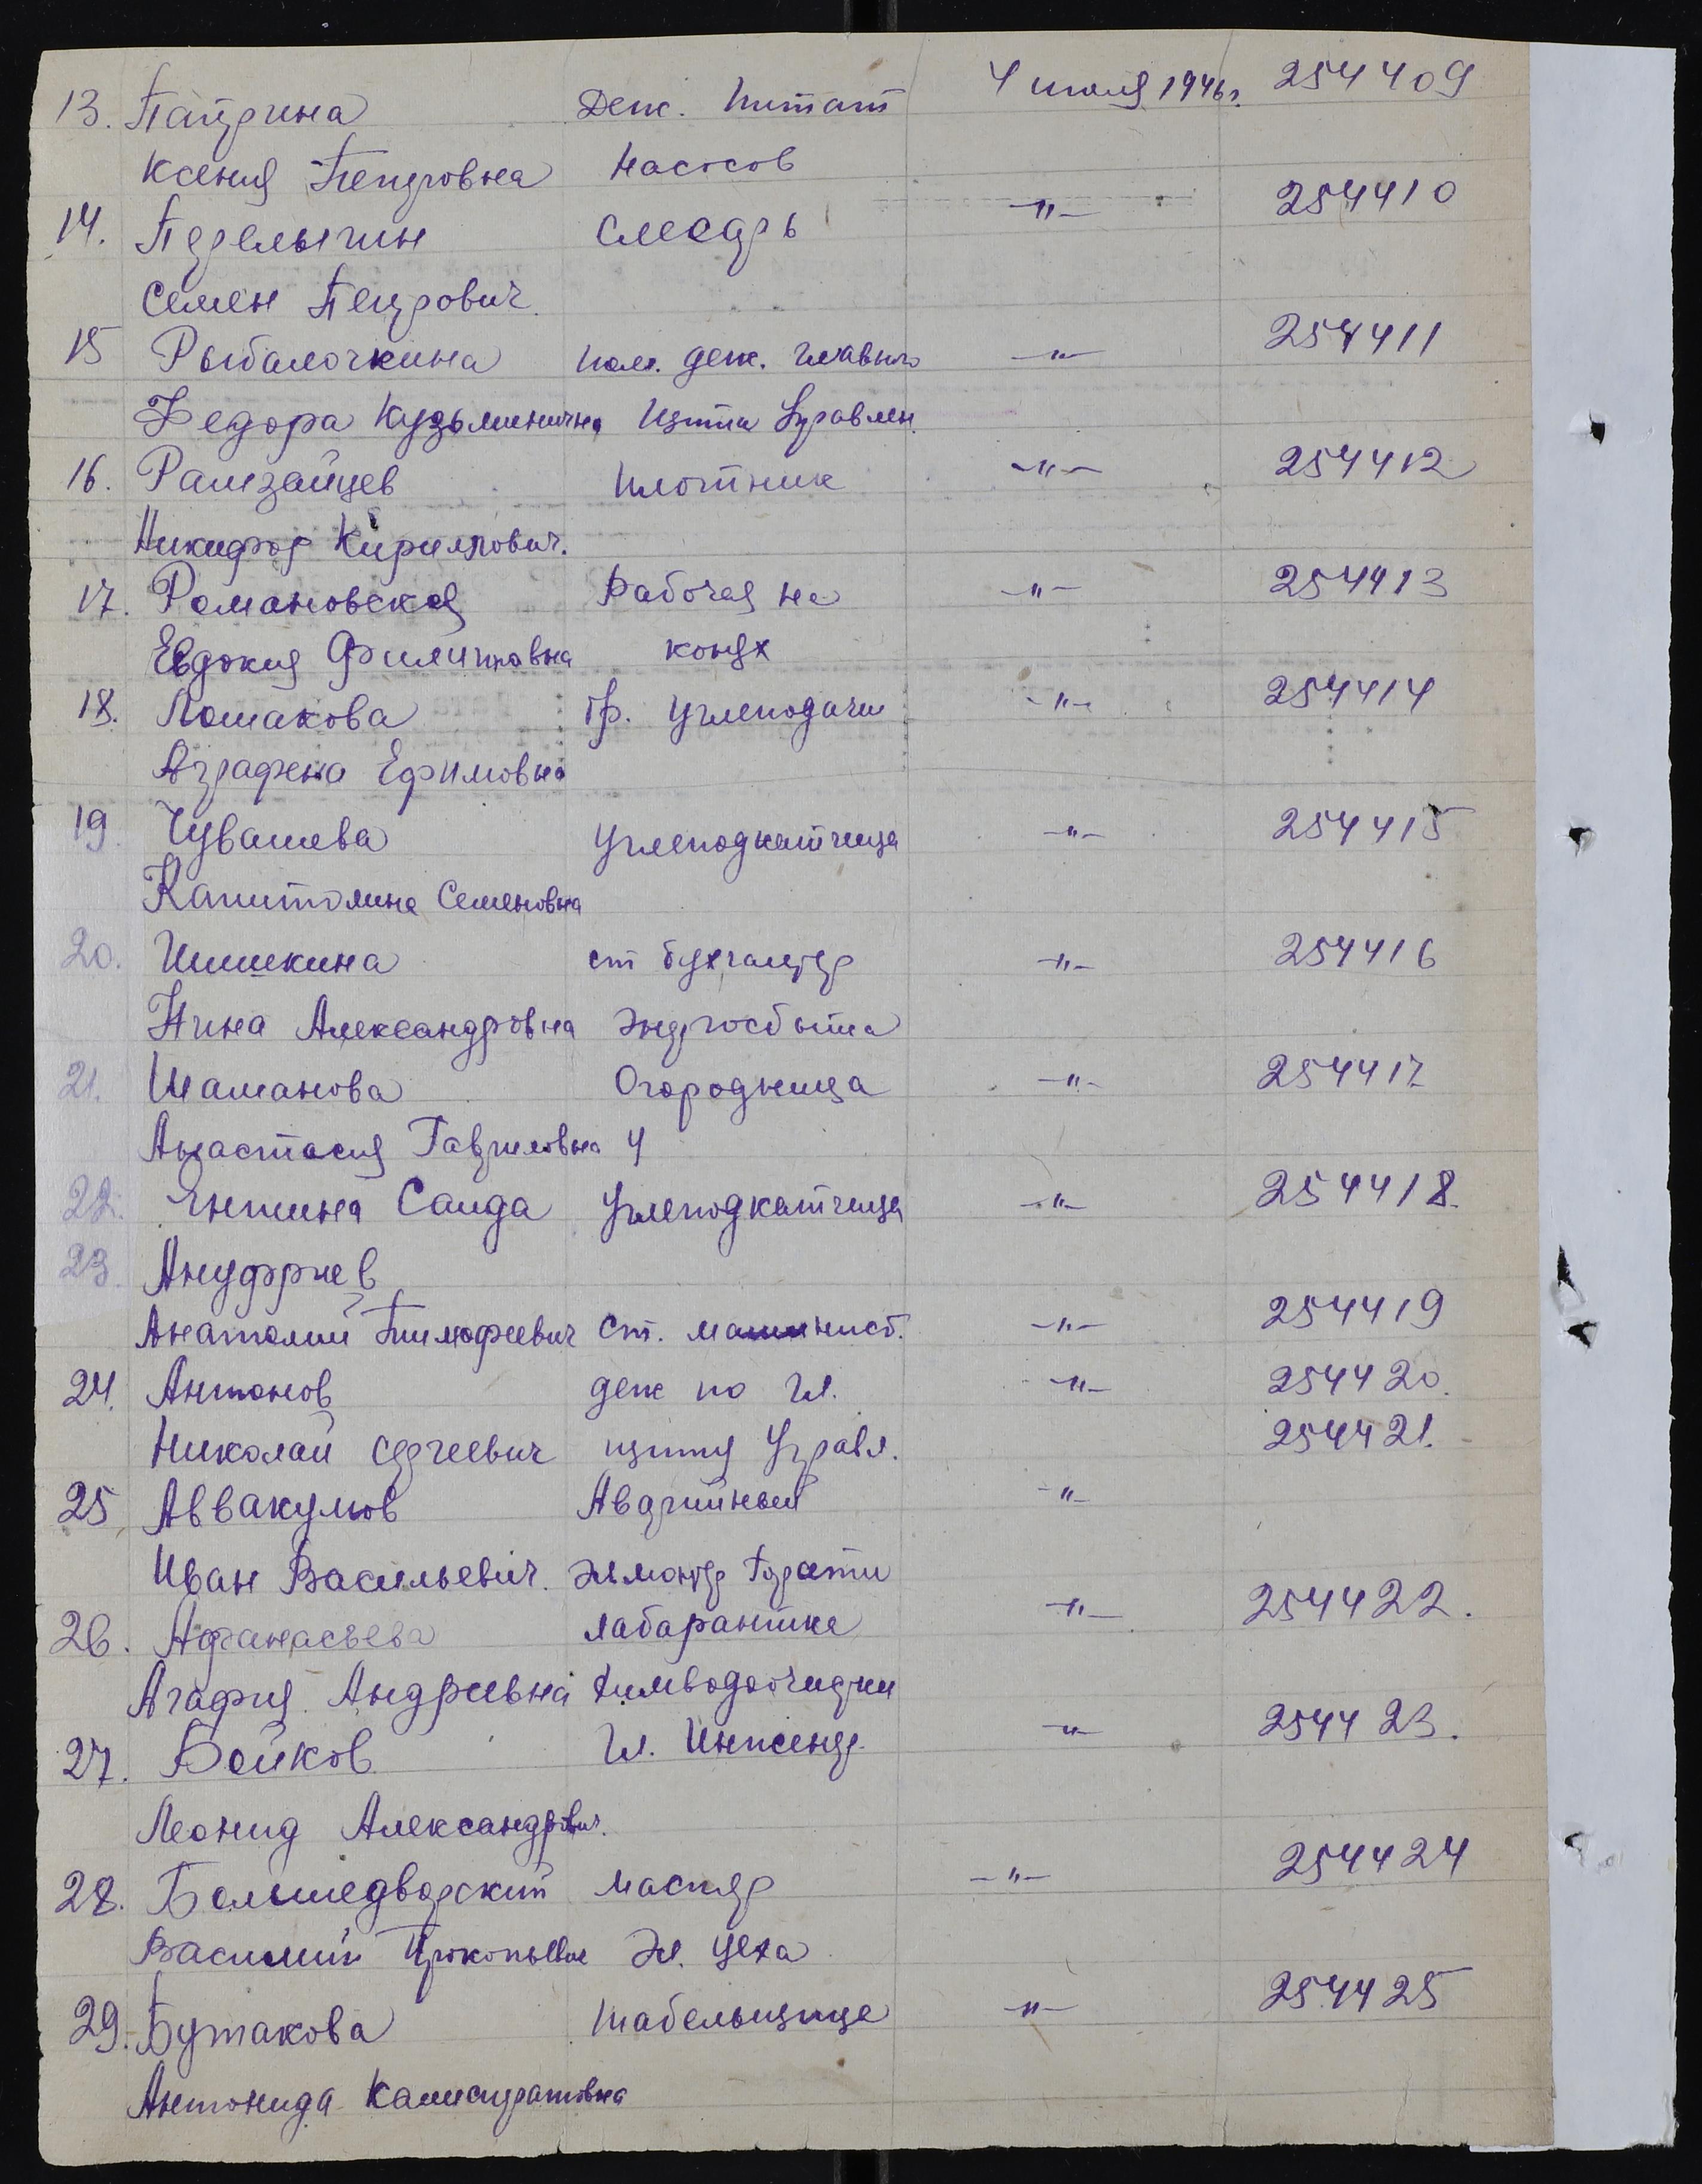 13. Патрина Деж. питат 4 июля 1946 г. 254409
Ксения Петровна насосов
14. Перелыгин слесарь -"- 254410
Семен Петрович
15 Рыбалочкина пом. деж. главного -"- 254411
Федора Кузьминична щита Управлен.
16. Рамзайцев плотник -"- 254412
Никифор Кириллович.
17. Романовская Рабочая на -"- 254413
Евдокия Филипповна конях
18. Ломакова Гр. углеподачи -"- 254414
Аграфена Ефимовна
19. Чувашева углеподкатчица -"- 254415
Капитолина Семеновна
20. Шишкина ст бухгалтер -"- 254416
Нина Александровна энергосбыта
21. Шаманова Огородница -"- 254417
Анастасия Гавриловна ч
22. Саида углеподкатчица -"- 254418.
23. Ануфриев
Анатолий Тимофеевич ст. машинист. -"- 254419
24. Антонов деж по Гл. -"- 254420.
Николай Сергеевич щиту Управл. 254421.
25 Аввакумов Аварийный -"-
Иван Васильевич. эл.монтер
26. Афанасьева лаборантка -"- 254422.
Агафия Андреевна химводоочистки
27. Бойков Гл. Инженер -"- 254423.
Леонид Александрович.
28. Большедворский мастер -"- 254424
Василий Прокопьевич Эл. цеха
29. Бутакова табельщица -"- 254425
Антонида Калистратовна